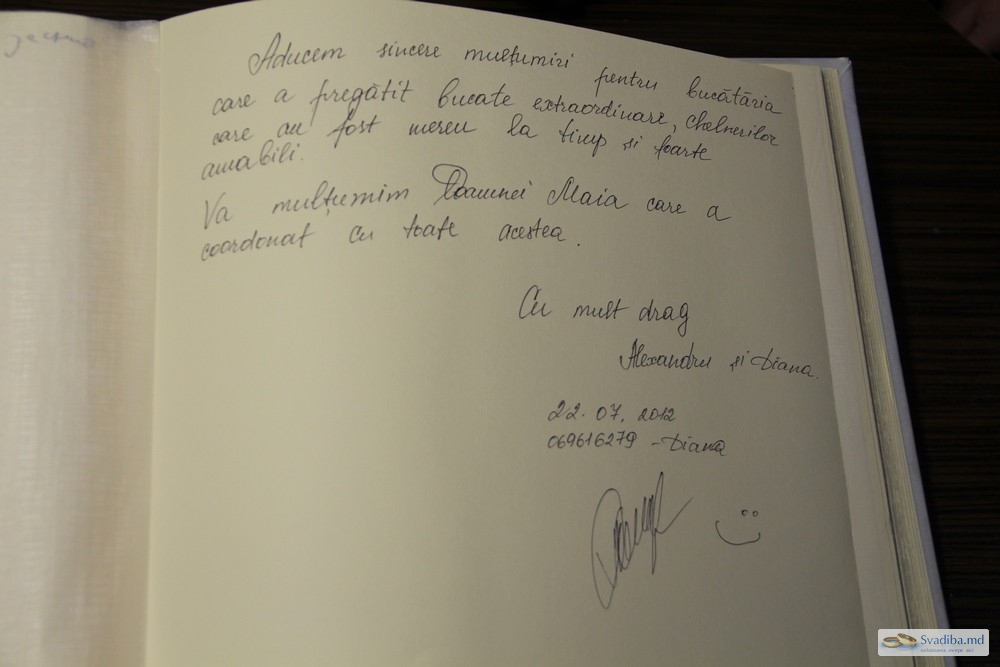 Aducem sincere mulțumiri pentru bucătăria
care a pregătit bucate extraordinare, chelnerilor
care au fost mereu la timp și foarte
amabili.
Va mulțumim Doamnei Maia care a
coordonat cu toate acestea.
Cu mult drag
Alexandru și Diana.
22.07.2012
069616279 - Diana
Svadiba.md